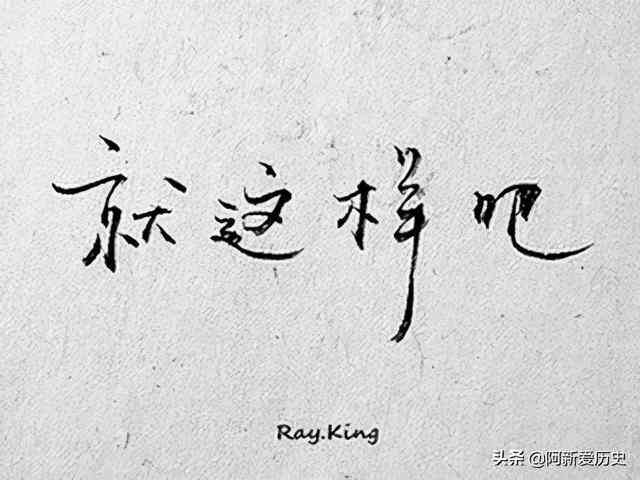 就这样吧
Ray.King
头条 @阿新爱历史